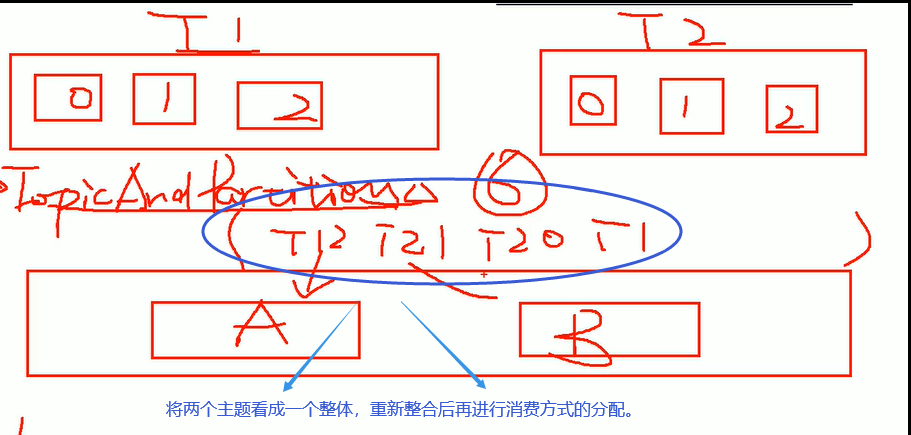 T1 T2
0 1 2 0 1 2
TopicAndPartitions 6
T12 T21 T20 T1
A B
将两个主题看成一个整体，重新整合后再进行消费方式的分配。